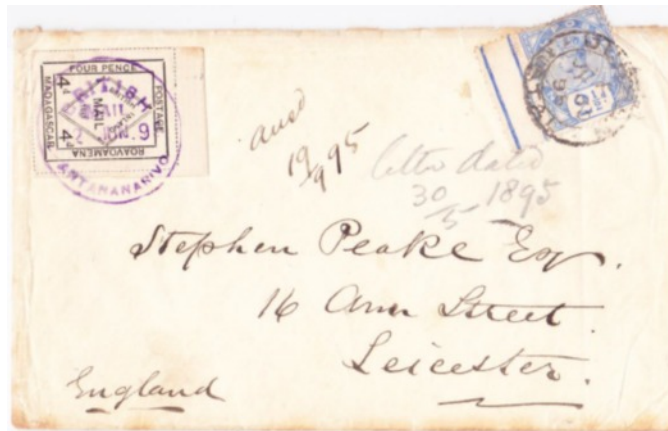 FOUR PENCE
POSTAGE
MADAGASCAR
ROAVDAMENA
4d
4d
BRITISH
MAIL
MAIL
ANTANANARIVO
ansd
19/9 95
letter dated
30/5 1895
Stephen Peake Esq.
16 Ann Street.
Leicester.
England